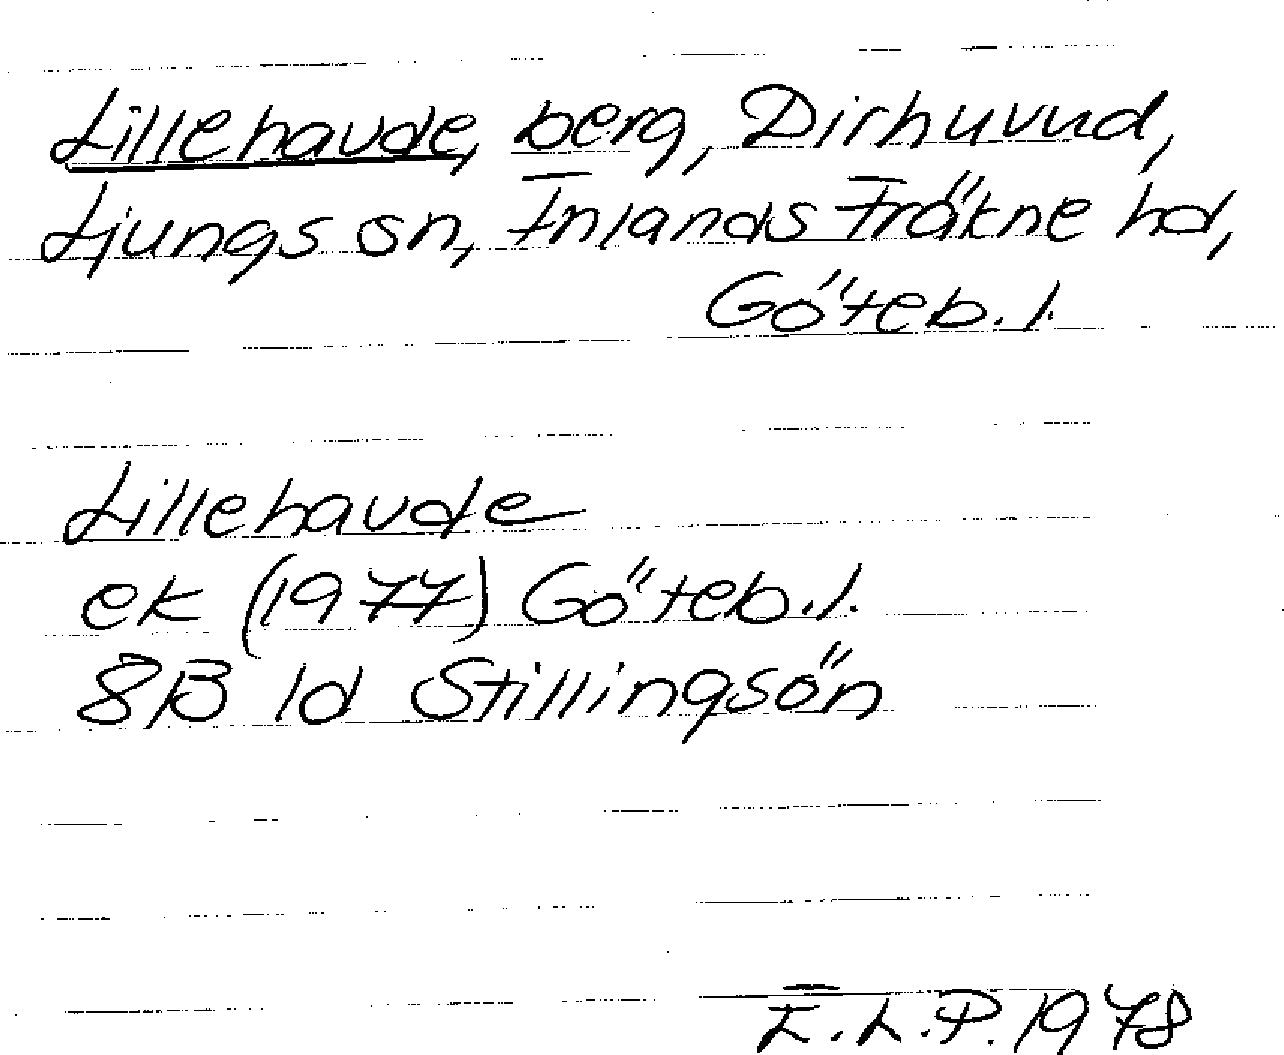 Lillehavde, berg, Dirhuvud,
Ljungs sn, Inlands Fräkne hd,
Göteb. l.
Lillehavde
ek (1977) Göteb. l.
8B 1d Stillingsön
E. L. P. 1978